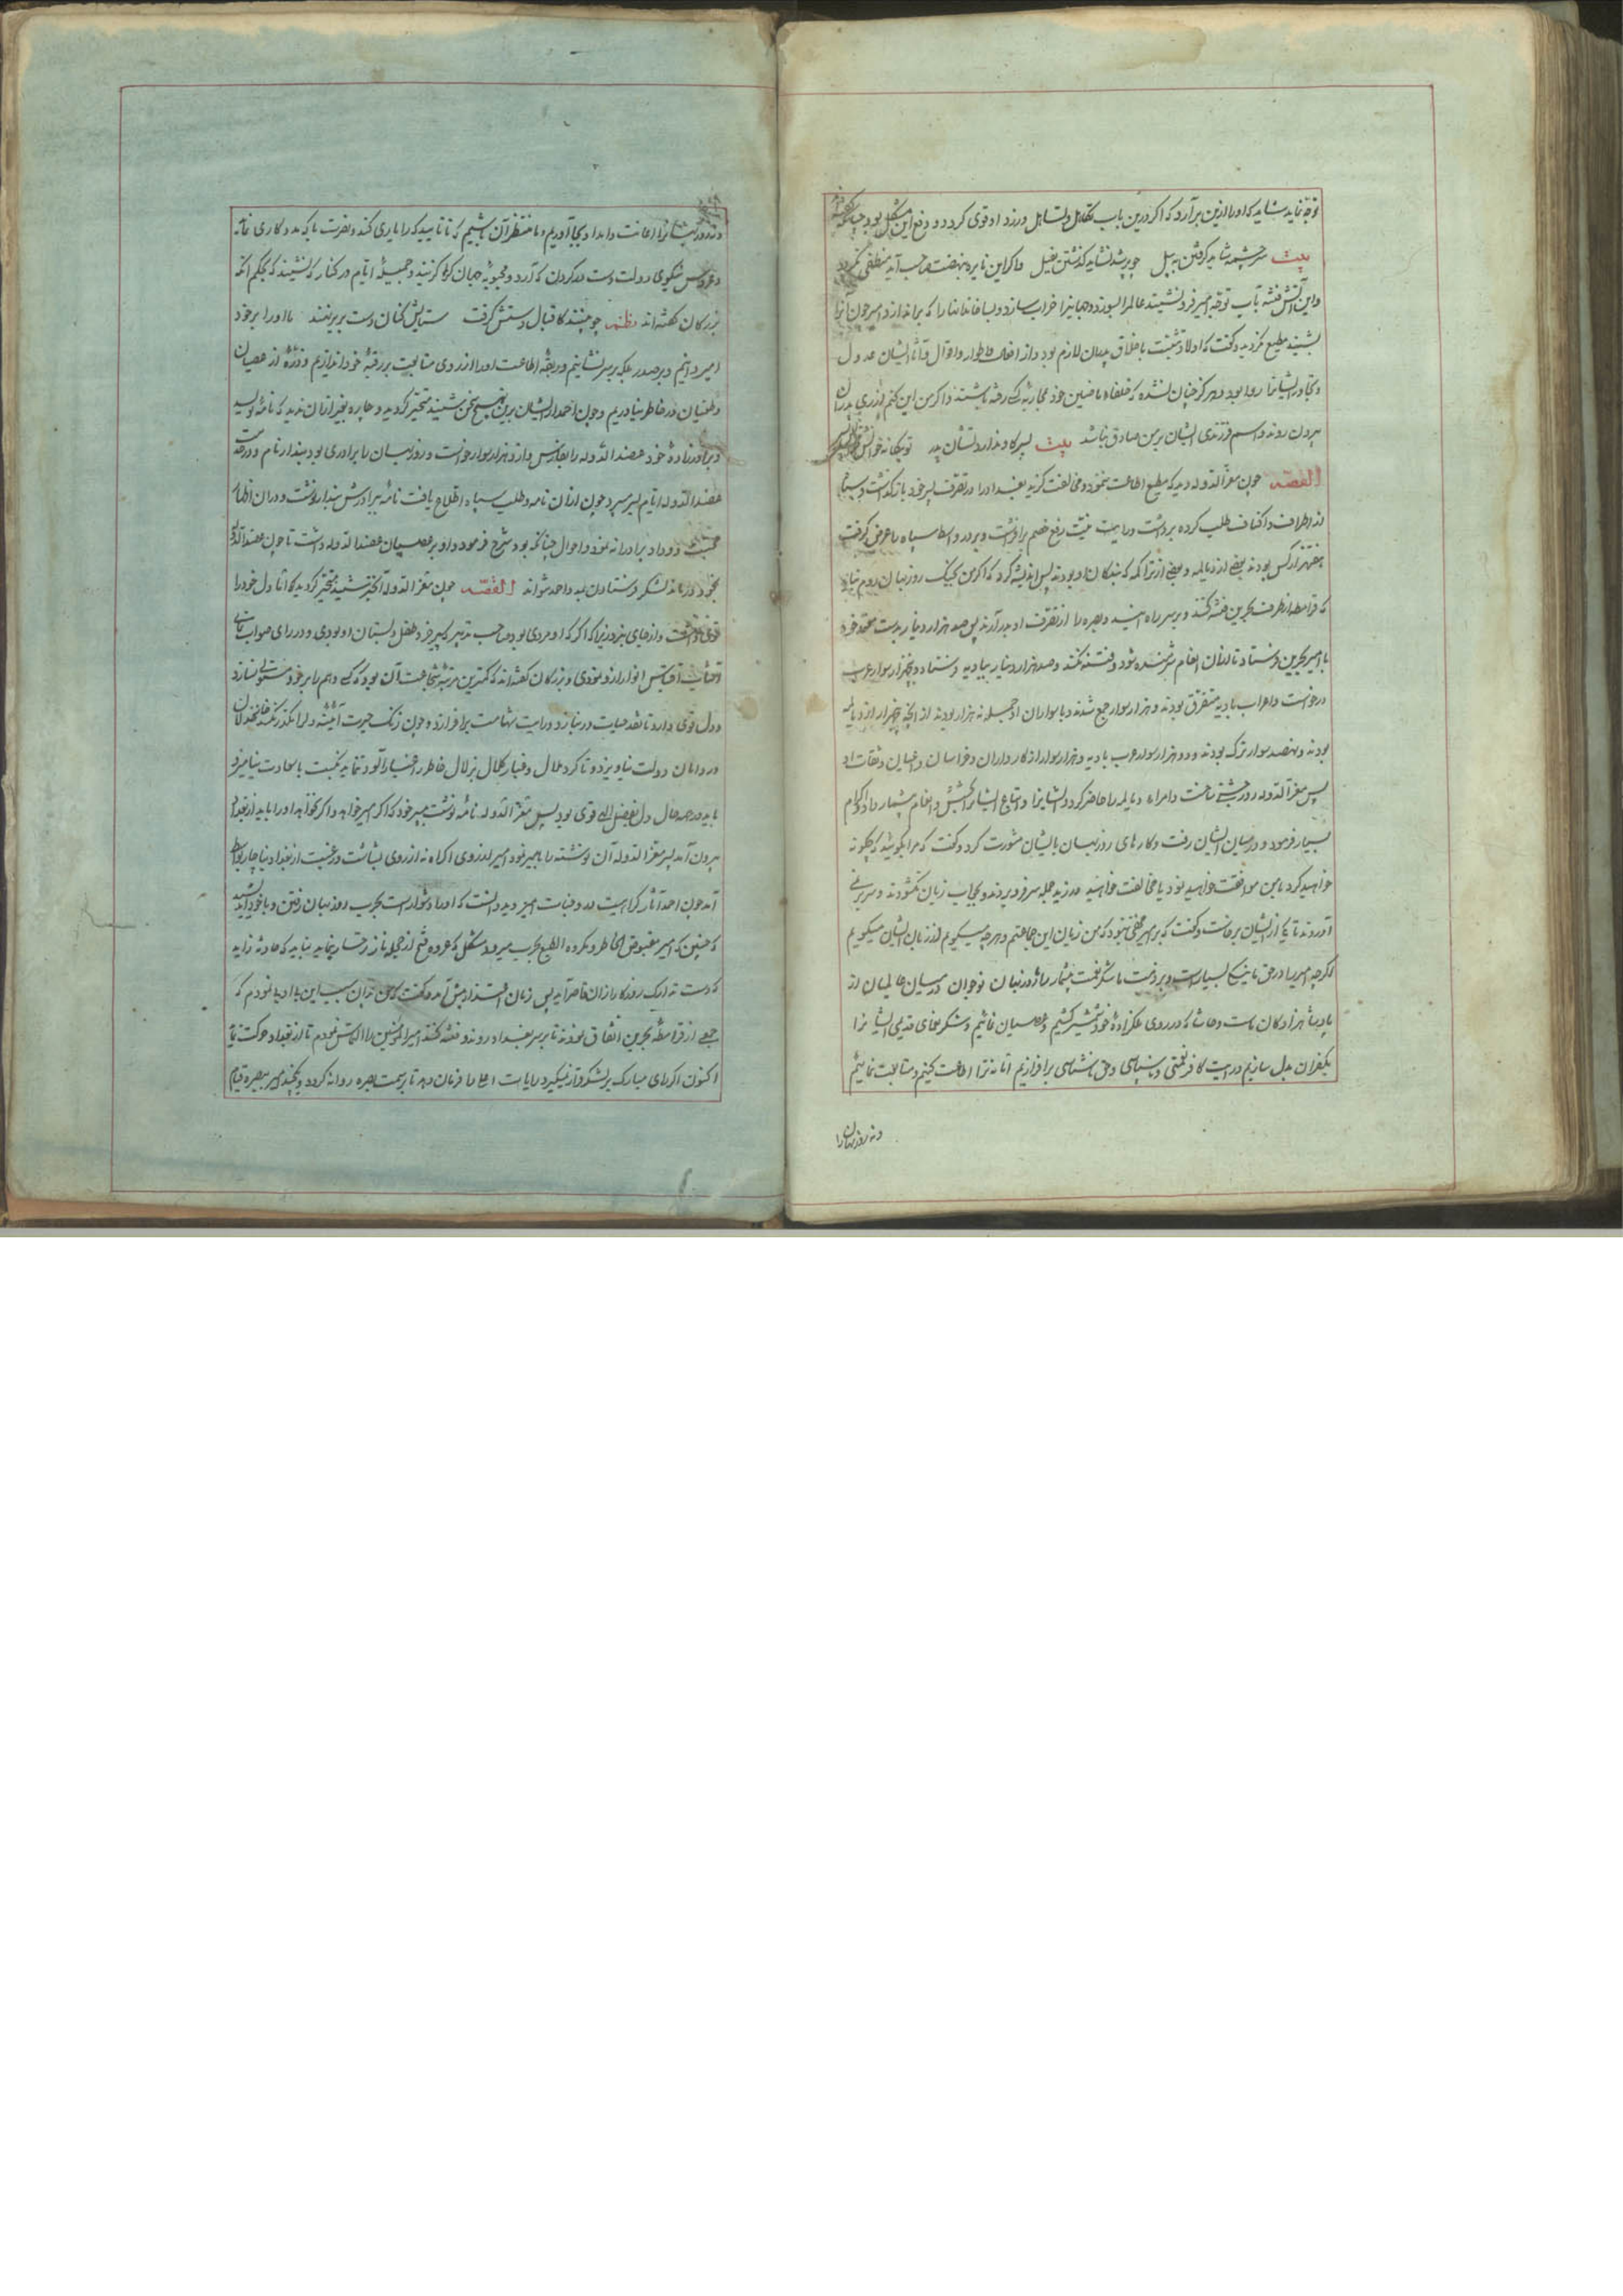 توجه نماید شاید که او را ازین برآرد که اگر درین باب تکاهل و تساهل ورزد او قوی گردد و دفع این مشکل بود چنانکه گفته‌اند
بیت سرچشمه شاید گرفتن به بیل چو پر شد نشاید گذشتن به پیل و اگر این نایره بنهضت صاحب آید منطفی نگردد
و این آتش فتنه بآب توجه امیر فرو ننشیند عالم را بسوزد و جهانیرا خراب سازد و بسا خاندانها را که براندازد امیر چون آنرا
بشنید مطیع نگردید و گفت که اولاد تشبث باخلاق پدران لازم بود و از افعال و اطوار و اقوال و آثار ایشان عدول
و تجاوز ایشانرا روا نبود و هرگز چنان نشده که خلفاء ماضین خود بمحاربه کسی رفته باشند و اگر من این کنم از رای پدران
بیرون روند و اسم فرزندی ایشان بر من صادق نباشد بیت پسر کاو ندارد نشان پدر تو بیگانه خوانش مخوانش پسر
القصه چون معز الدوله دید که مطیع اطاعت ننمود و مخالفت گزید بغداد را در تصرف پسر خود بازگذاشت و سپاه
از اطراف و اکناف طلب کرده برداشت و رایت نیت رفع خصم برافراشت و بر در واسط سپاه را عرض گرفت
هفتهزار کس بودند بعضی از دیالمه و بعضی از تراکمه که بندگان او بودند پس اندیشه کرد که اگر من بجنگ روزبهان روم نباید
که قرامطه از طرف بحرین فتنه کنند و بر سر راه آیند و بصره را از تصرف او بدر آرند پس صد هزار دینار بدست معتمد خود
بامیر بحرین فرستاد تا از آن انعام شرمنده شود و فتنه نکند و صد هزار دینار ببادیه فرستاد و پنجهزار سوار عرب
درخواست و اعراب بادیه متفرق بودند و هزار سوار جمع شدند و با سواران او جمله نه هزار بودند از آنجمله چهار هزار از دیالمه
بودند و پانصد سوار ترک بودند و دو هزار سوار عرب بادیه و هزار سوار از کارداران و خراسان و اعیان و ثقات او
پس معز الدوله روز جشنی ساخت و امراء دیالمه را حاضر کرد و ایشانرا و اتباع ایشانرا بخشش و انعام بیشمار داد و اکرام
بسیار فرمود و در میان ایشان رفت و کارهای روزبهان با ایشان مشورت کرد و گفت که مرا بگوئید که چگونه
خواهید کرد با من موافقت خواهید نمود یا مخالفت خواهید ورزید جمله سر فرو بردند و بجواب زبان نگشودند و سر برنی
آوردند تا یکی از ایشان برخاست و گفت که بر امیر مخفی نبود که من زبان این جماعتم و هر چه میگویم از زبان ایشان میگویم
اگر چه امیر را در حق ما نیکی بسیار است و بر ذمت ما شکر نعمت بیشمار اما روزبهان نوجوان در میان دیالمیان از
پادشاهزادگان ماست و حاشا که در روی ملکزاده خود شمشیر کشیم و عصیان نمائیم و شکر نعمای قدیمی ایشانرا
بکفران بدل سازیم و رایت کافرنعمتی و ناسپاسی و حق ناشناسی برافرازیم اما نه ترا اطاعت کنیم و متابعت نمائیم
و نه روزبهان را
و نه روزبهان را اعانت و امداد بجا آوریم و ما منتظر آن باشیم که تا تایید که را یاری کند و نصرت با که مددکاری نماید
و عروس نیکوی دولت دست در گردن که آرد و محبوبه جهان کرا گزیند و جمیله ایام در کنار که نشیند که بحکم آنکه
بزرگان گفته‌اند نظم چو بینند کاقبال دستش گرفت ستایش کنان دست بر بر نهند ما او را بر خود
امیر دانیم و بر صدر بلکه بر سر نشانیم و ربقه اطاعت او را از روی متابعت بر رقبه خود اندازیم و ذره از عصیان
و طغیان در خاطر نیاوریم و چون احمد از ایشان برین نهج سخن شنید متحیر گردید و چاره بغیر از آن ندید که نامه نویسد
و برادرزاده خود عضد الدوله را بفارس و ازو هزار سوار خواست و روزبهان را برادری بود بندار نام و در خدمت
عضد الدوله ایام بسر میبرد چون از آن نامه و طلب سپاه اطلاع یافت نامه ببرادرش بندار نوشت و در آن اظهار
محبت و وداد برادرانه نمود و احوال چنانکه بود شرح فرمود و او بر عصیان عضد الدوله داشت تا چون عضد الدوله
بخود درماند لشکر فرستادن بمدد احمد نتواند القصه چون معز الدوله آنخبر شنید متحیر گردید اما دل خود را
قوی داشت و از جای نبرد زیرا که اگر که او مردی بود صاحب تدبیر که پیر خرد طفل دبستان او بودی و در رای صواب نمای
آفتاب اقتباس انوار ازو نمودی و بزرگان گفته‌اند که کمترین مرتبه شجاعت آن بود که کسی وهم را بر خود مستولی نسازد
و دل قوی دارد تا نقد حیات در نبازد و رایت شهامت برافرازد و چون زنگ حیرت آئینه دل را مکدر نکند خار خذلان
در دامان دولت نیاویزد و تا گرد ملال و غبار کلال بزلال خاطر راه نیابد آلوده نماید نکبت با سعادت نیامیزد
باید در همه حال دل بفضل الهی قوی بود پس معز الدوله نامه نوشت بپسر خود که اگر امیر خواهد و اگر نخواهد او را باید از بغداد
بیرون آمد پسر معز الدوله آن نوشته را بامیر نمود امیر از روی اکراه نه از روی بشاشت و رغبت از بغداد بناچار بیرون
آمد چون احمد آثار کراهیت در وجنات امیر دید دانست که او را دشوار است بحرب روزبهان رفتن و با خود اندیشید
که چنین که امیر مقبوض الخاطر و مکروه الطبع بحرب میرود مشکل که عروس فتح از حجله ناز رخسار نماید نباید که حادثه زاید
که دست تدارک روزگار از آن قاصر آید پس زبان اعتذار پیش آمد و گفت که من بدان سبب این با ادبی نمودم که
جمعی از قرامطه بحرین اتفاق نمودند تا بر سر بغداد روند و فتنه کنند امیر المؤمنین را التماس نمودم تا از بغداد حرکت نماید
اکنون اگر رای مبارک بر لشکر قرار نمیگیرد رایات اعلی را فرمان دهد تا بسمت بصره روانه گردد و یکچند امیر ببصره قیام